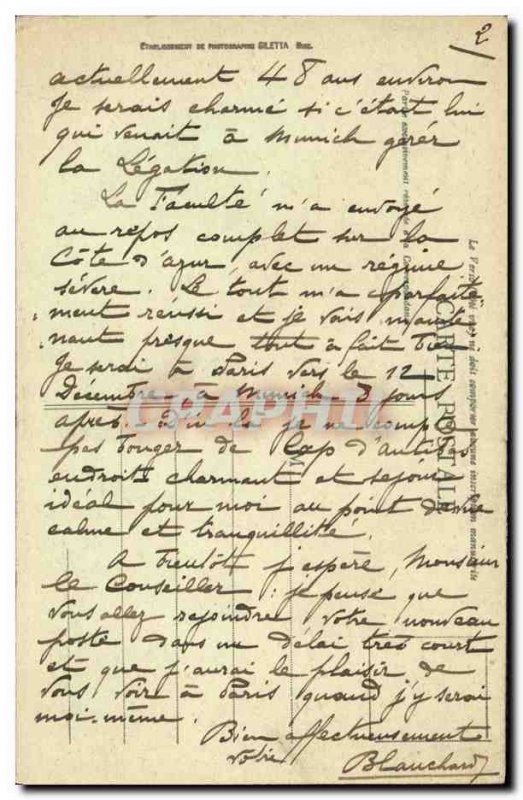 ETABLISSEMENT DE PHOTOGRAPHIE GILETTA NICE.
2
actuellement 48 ans environ
Je serais charmé si c'était lui
qui venait à Munich gérer
la Légation.
La Faculté m'a envoyé
au repos complet sur la
Côte d'azur, avec un régime
sévère. Le tout m'a parfaite
ment réussi et je vais mainte
nant presque tout à fait bien
Je serai à Paris vers le 12
Décembre, à Munich 3 jours
après. D'ici là je ne compte
pas bouger de Cap d'antibes
endroit charmant et séjour
idéal pour moi au point de vue
calme et tranquillité.
A bientôt j'espère, Monsieur
le Conseiller : je pense que
vous allez rejoindre votre nouveau
poste dans un délai très court
et que j'aurai le plaisir de
vous voir à Paris quand j'y serai
moi-même.
Bien affectueusement
votre
Blanchard
CARTE POSTALE
CPAPHIL